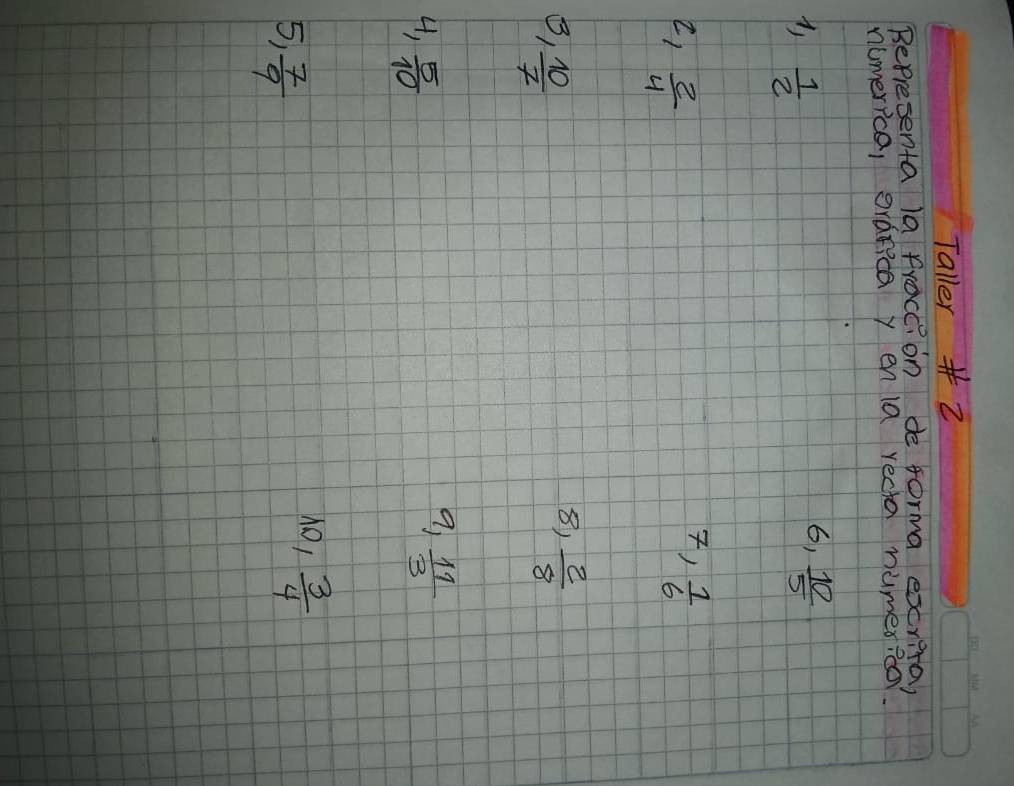 Taller #2
Representa la fracción de forma escrita,
númerica, gráfica y en la recta númerica.
1, 1/2
2, 2/4
3, 10/7
4, 5/10
5, 7/9
6, 10/5
7, 1/6
8, 2/8
9, 11/3
10, 3/4